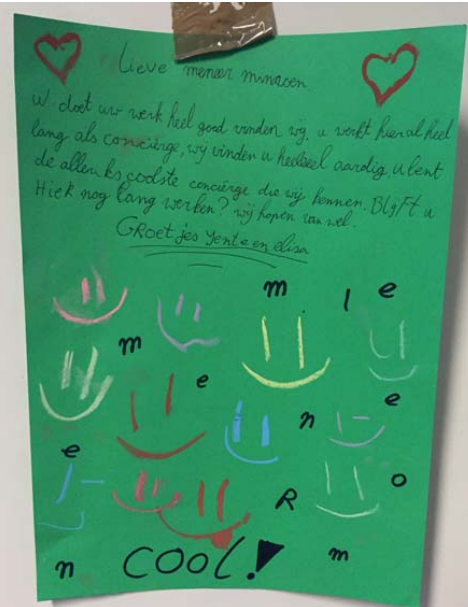 Lieve meneer minnosen
U doet uw werk heel goed vinden wij. u werkt hier al heel
lang als conciërge, wij vinden u heelveel aardig, u bent
de allerniks coolste conciërge die wij kennen. Blijft u
Hier nog lang werken? wij hopen van wel.
Groetjes Yente en elisa
m l e
m
e n e
e
R o
n COOL! m